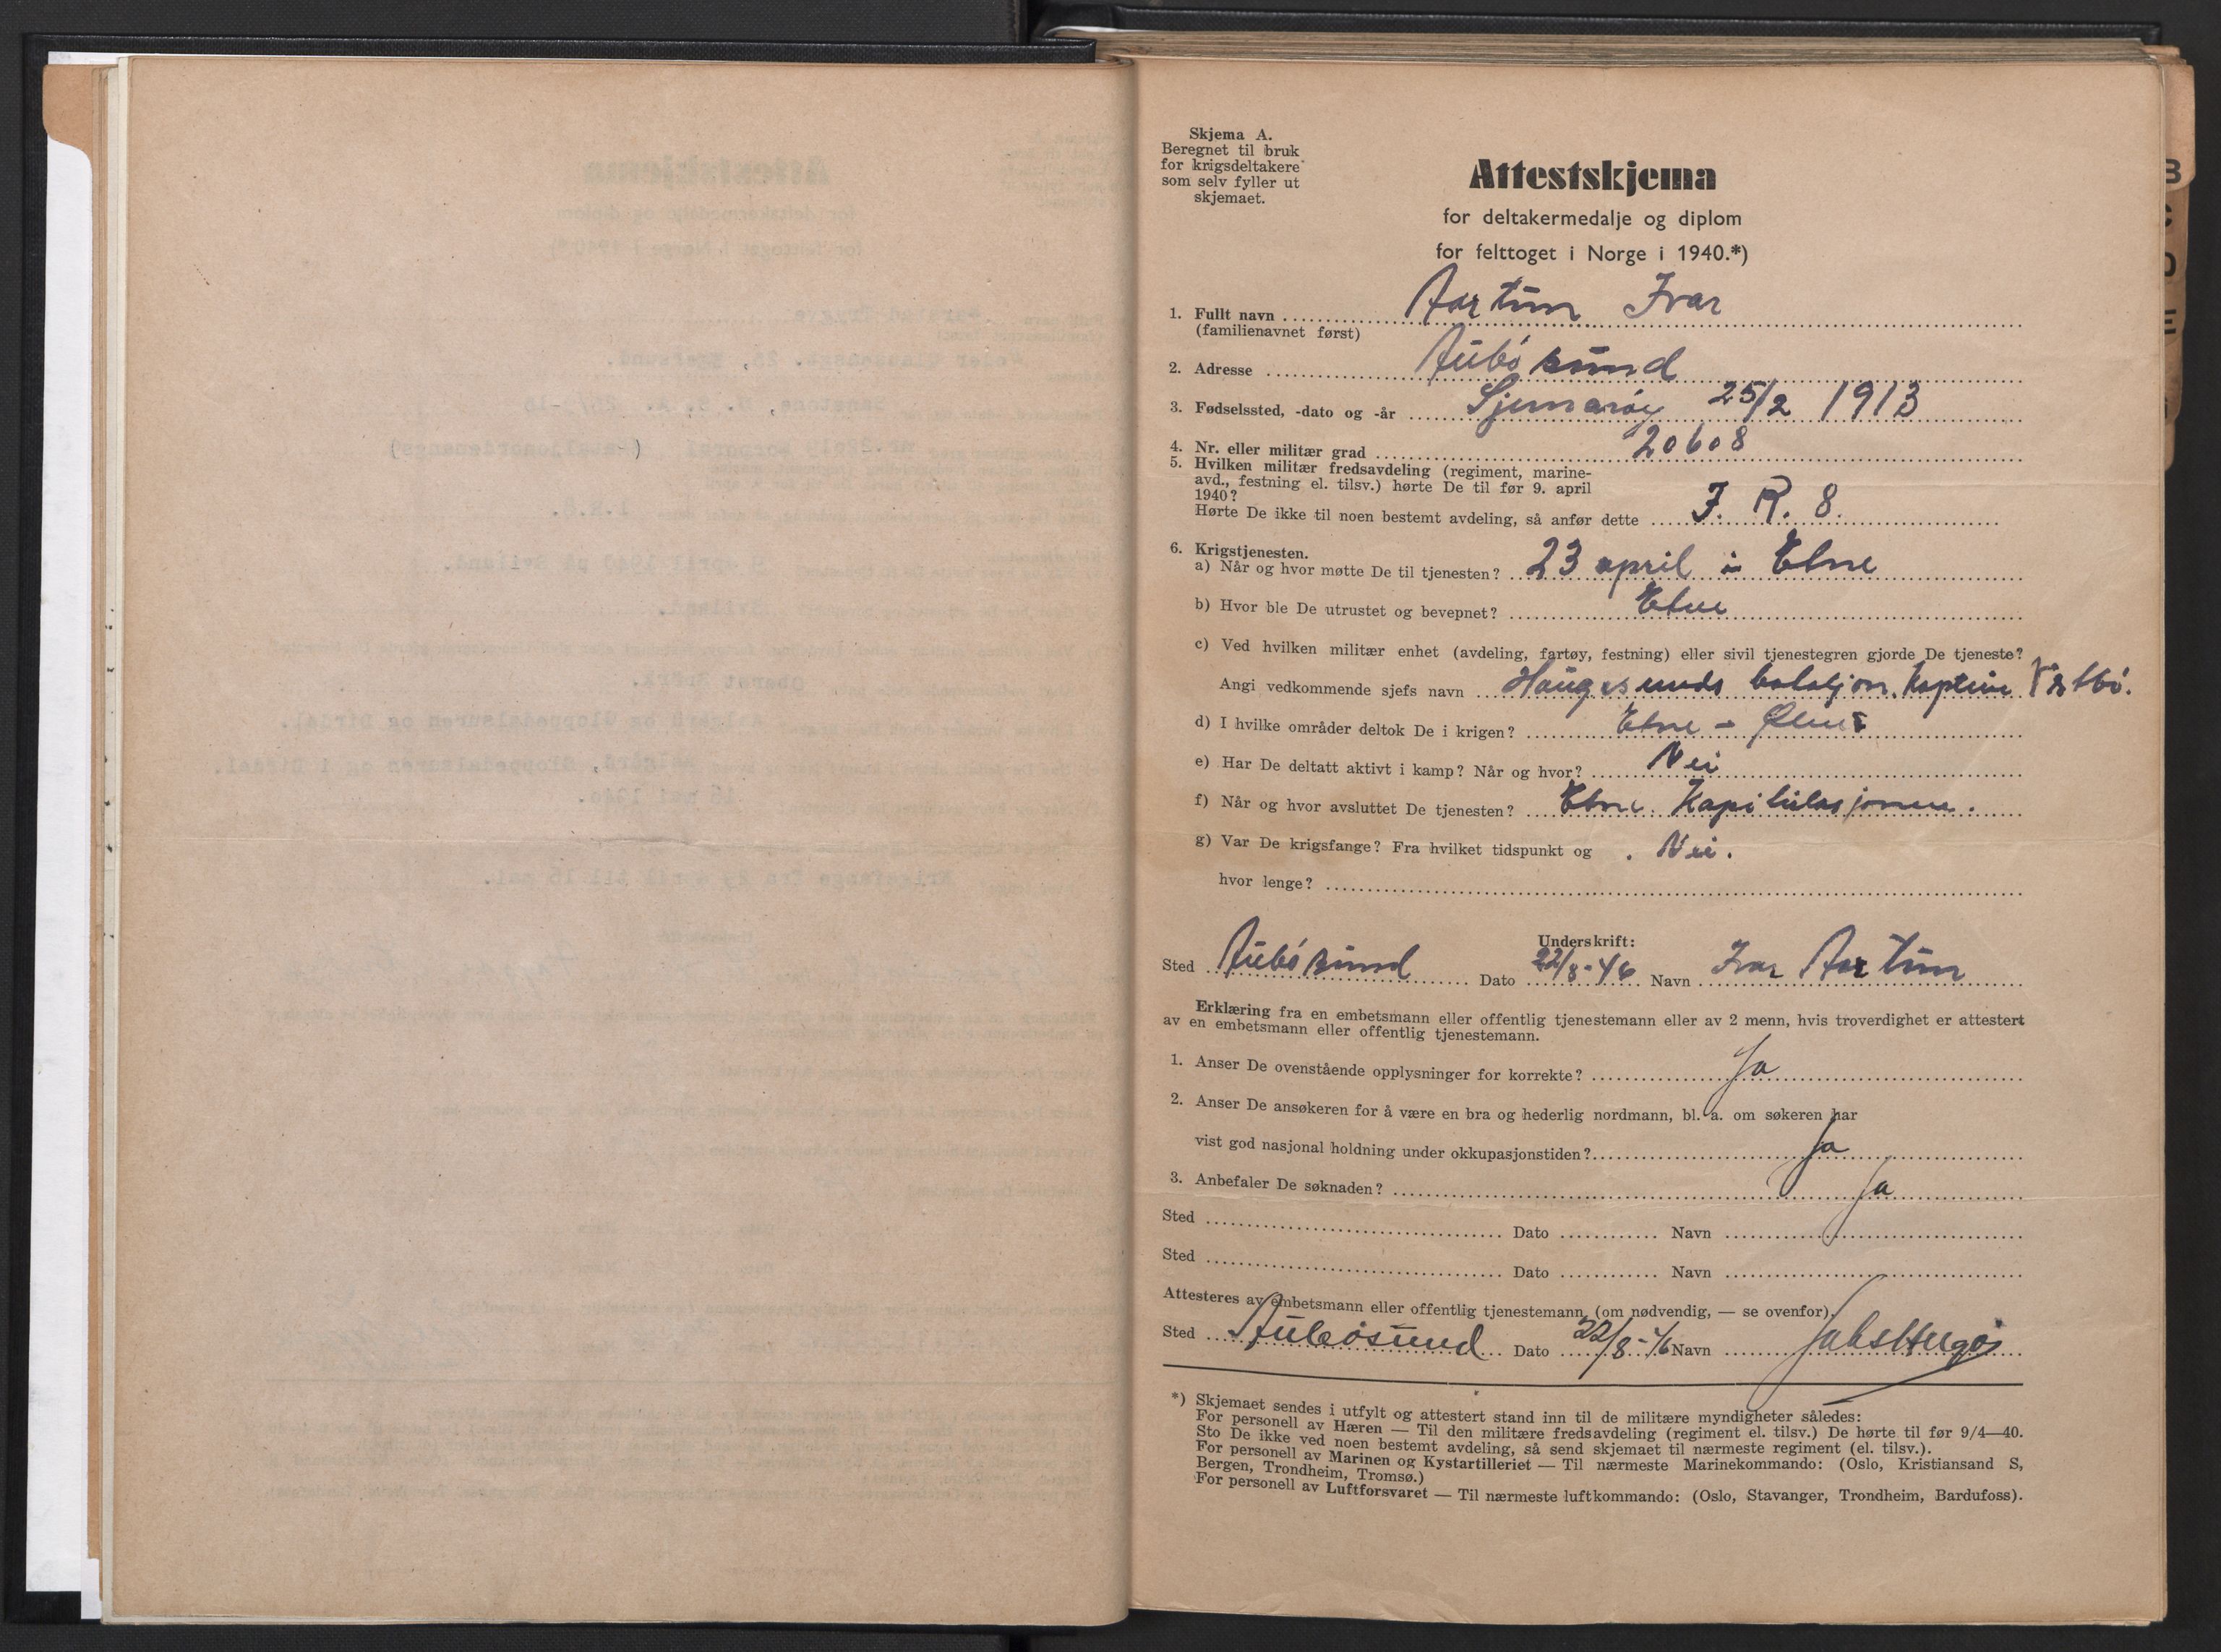 Skjema A.
Beregnet til bruk
for krigsdeltakere
som selv fyller ut
skjemaet.
Attestskjema
for deltakermedalje og diplom
for felttoget i Norge i 1940.*)
1. Fullt navn Aartun Ivar
(familienavnet først)
2. Adresse Aubøsund
3. Fødselssted, -dato og -år Sjernarøy 25/2 1913
4. Nr. eller militær grad 20608
5. Hvilken militær fredsavdeling (regiment, marine-
avd., festning el. tilsv.) hørte De til før 9. april
1940?
Hørte De ikke til noen bestemt avdeling, så anfør dette J. R. 8.
6. Krigstjenesten.
a) Når og hvor møtte De til tjenesten? 23 april i Etne
b) Hvor ble De utrustet og bevepnet? Etne
c) Ved hvilken militær enhet (avdeling, fartøy, festning) eller sivil tjenestegren gjorde De tjeneste?
Angi vedkommende sjefs navn Haugesunds bataljon. Kaptein
d) I hvilke områder deltok De i krigen? Etne - Ølen
e) Har De deltatt aktivt i kamp? Når og hvor? Nei
f) Når og hvor avsluttet De tjenesten? Etne. Kapitulasjonen.
g) Var De krigsfange? Fra hvilket tidspunkt og . Nei.
hvor lenge?
Underskrift:
Sted Aubøsund Dato 22/8-46 Navn Ivar Aartun
Erklæring fra en embetsmann eller offentlig tjenestemann eller av 2 menn, hvis troverdighet er attestert
av en embetsmann eller offentlig tjenestemann.
1. Anser De ovenstående opplysninger for korrekte? Ja
2. Anser De ansøkeren for å være en bra og hederlig nordmann, bl. a. om søkeren har
vist god nasjonal holdning under okkupasjonstiden? Ja
3. Anbefaler De søknaden? Ja
Sted Dato Navn
Sted Dato Navn
Attesteres av embetsmann eller offentlig tjenestemann (om nødvendig, — se ovenfor).
Sted Aubøsund Dato 22/8-46 Navn
*) Skjemaet sendes i utfylt og attestert stand inn til de militære myndigheter således:
For personell av Hæren — Til den militære fredsavdeling (regiment el. tilsv.) De hørte til før 9/4—40.
Sto De ikke ved noen bestemt avdeling, så send skjemaet til nærmeste regiment (el. tilsv.).
For personell av Marinen og Kystartilleriet — Til nærmeste Marinekommando: (Oslo, Kristiansand S,
Bergen, Trondheim, Tromsø.)
For personell av Luftforsvaret — Til nærmeste luftkommando: (Oslo, Stavanger, Trondheim, Bardufoss).
B
C
D
E